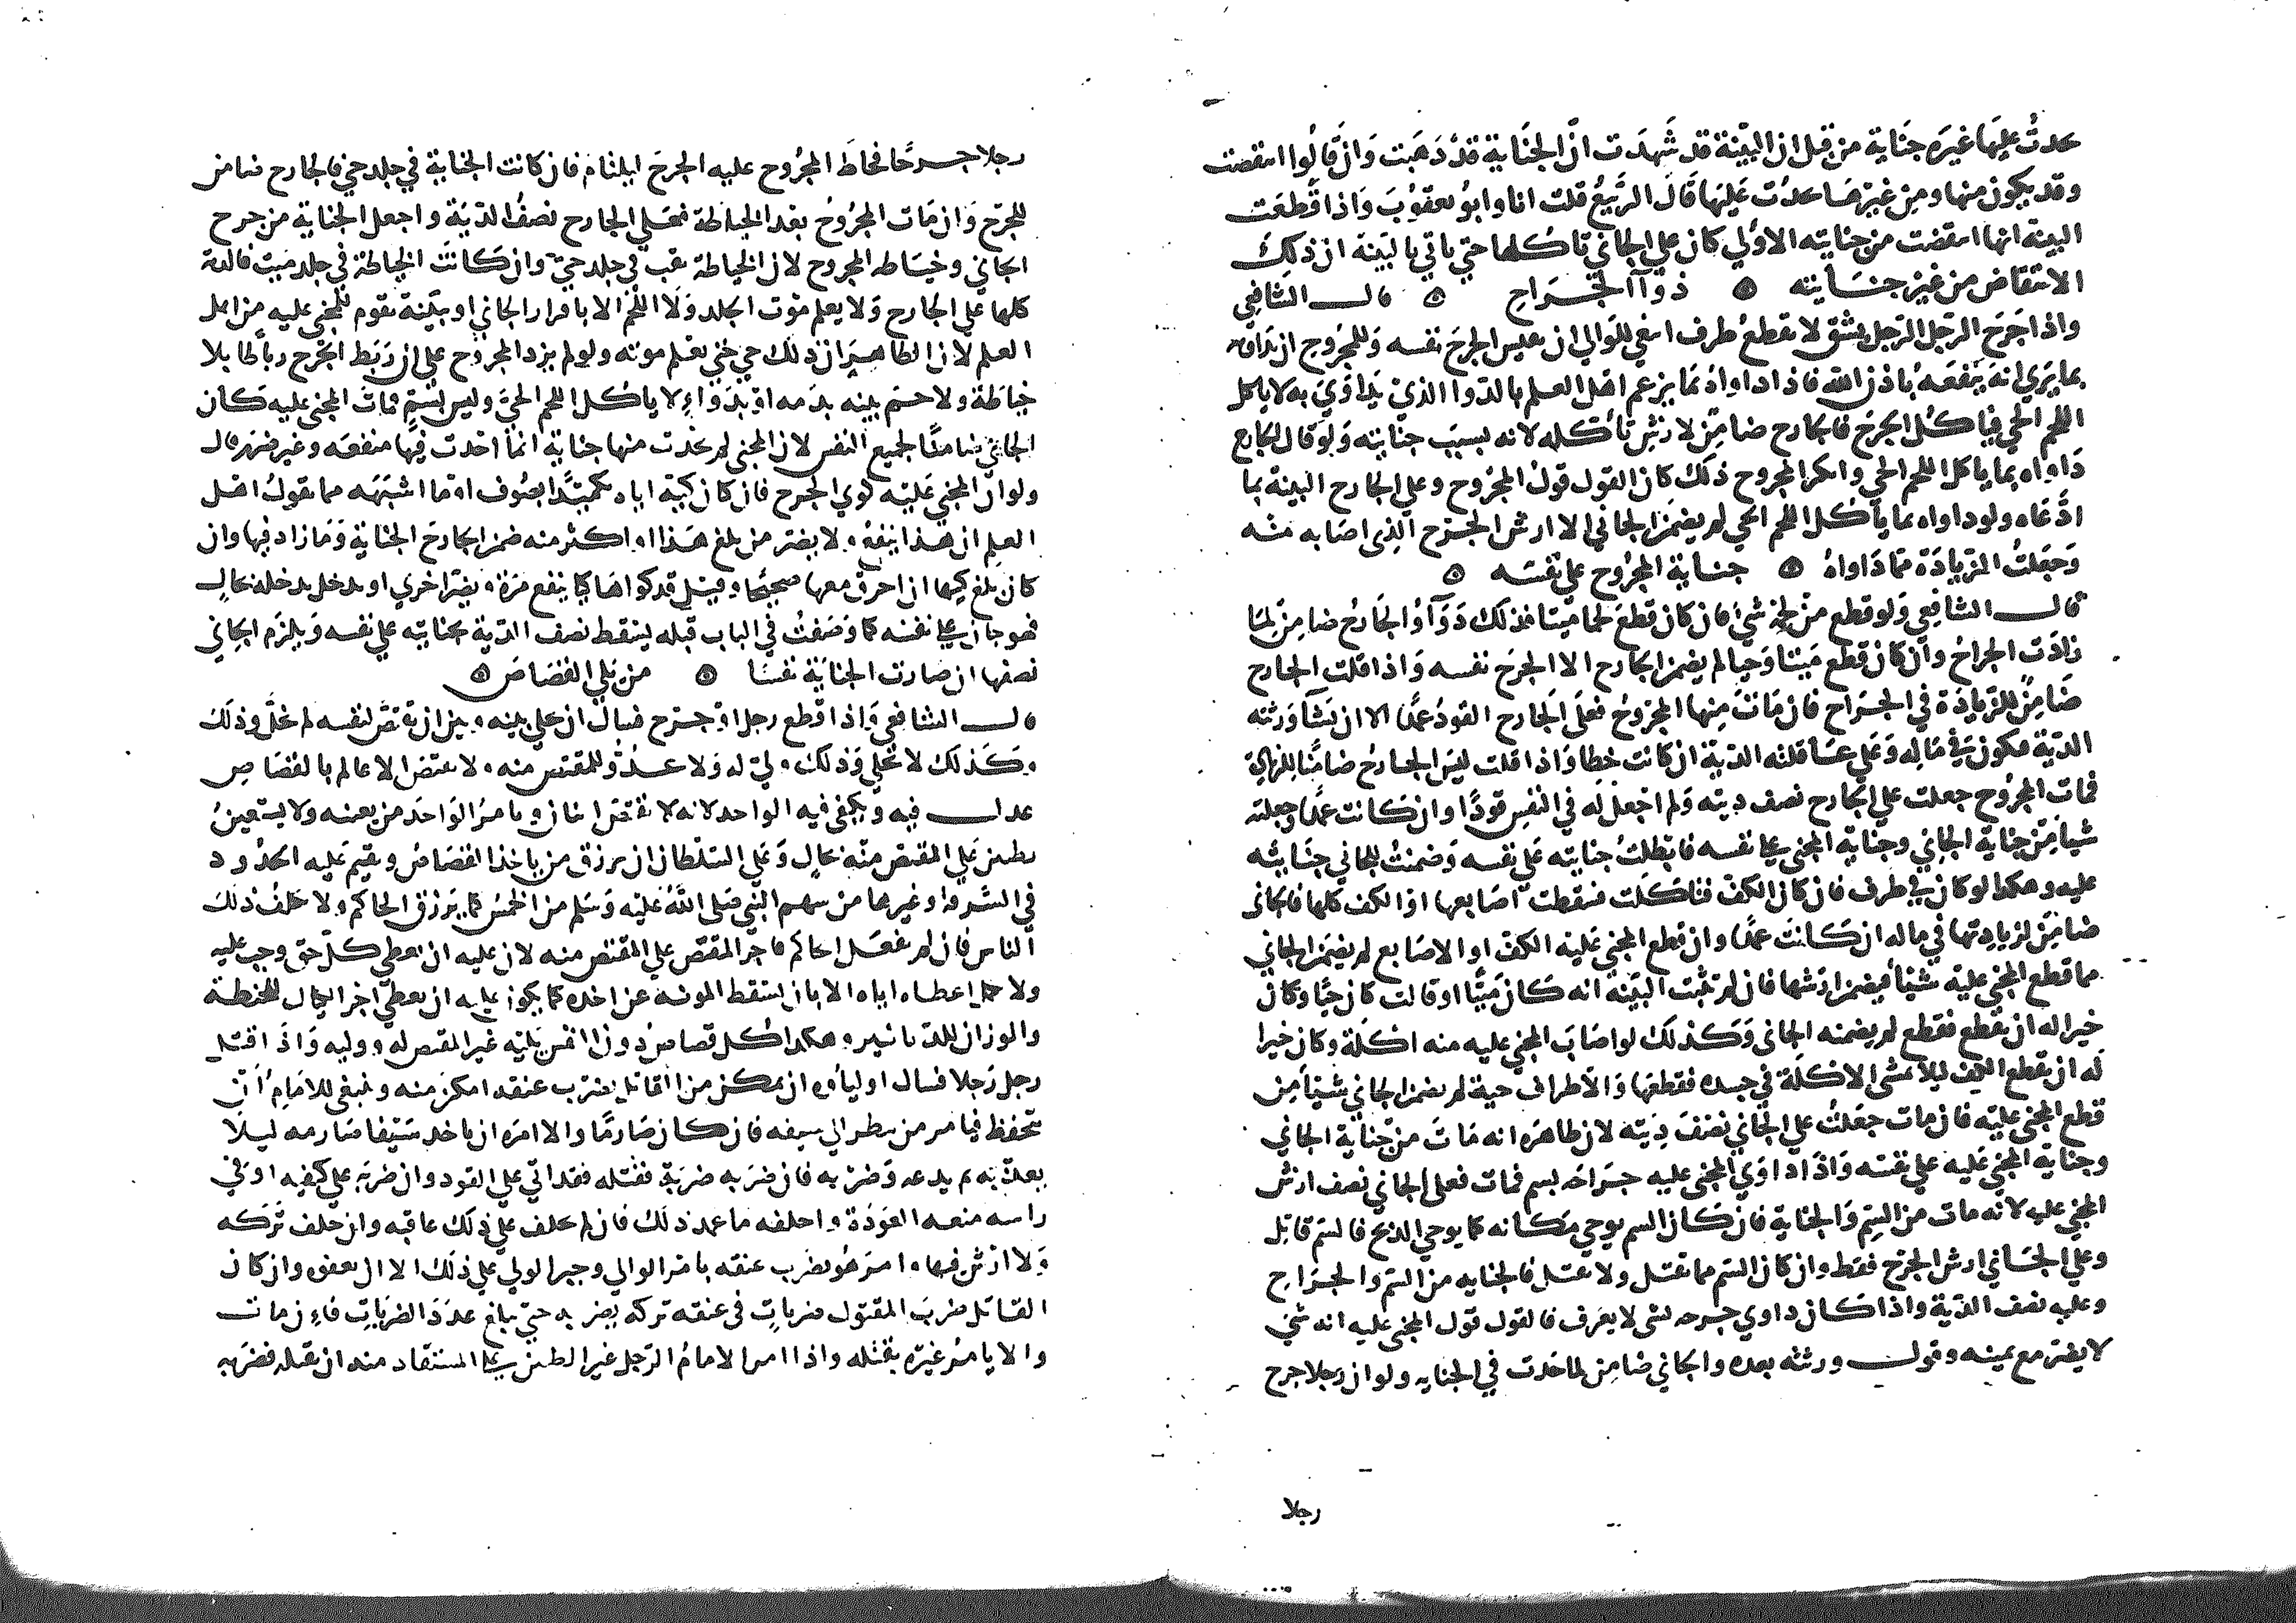 حدثُ عليها غيره جناية من قبل ان البيّنة قد شَهِدَت انّ الجَنَاية قدْ ذهَبَت وَانْ قَالُوا انتقضت
وقد يكون منها ومِنْ غيْرهَا حدثت عَليْهَا قَالَ الرَّبيعُ قلت انا وابوُ يعقوُبَ وَاذا قُطعَت
البينه انها انتقضت من جنايته الاوُلي كان علي الجاني تاكلها حتي ياتي بالبَيّنَة ان ذلكَ
الانتقاض من غيْر جنَايته ۞ دَوآ الجرَاحِ ۞ قال الشافعِي
واذا جَرَحَ الرّجل الرّجل بشق لا بقطعُ طرف انبغي للوَالي ان يقيس الجرحَ نفسه وَللمَجْرُوح ان يداويه
بما يَرَي انهَ يَنْفعَهُ باذن الله فاذا داواهُ بمَا يزعم اهْل العلم بالدوا الذيْ يُدَاوَيَ به لا ياكل
اللحْم الحيّ فيَا كُل الجرحَ فالجارح ضامِنٌ لارْشِ تأكله لانه بسبَب جنايته وَلوْ قال الجارح
دَاواه بما ياكل اللحم الحي وانكر المجروح ذلكَ كان القول قولُ المجْروح وعلي الجارح البينة بما
ادّعَاه ولو داواه بما يأكل اللحم الحي لم يضمن الجاني الا ارش الجرْح الذِي اصَابه منه
وَجَعَلتُ الزّيادَة ممّا دَاواهُ ۞ جناية المجْرُوح علي نفسَه ۞
قال الشافِعي وَلو قطع منْ لحمه شيءً فان كان قطعَ لحمًا ميّتا فذلك دَوَآ وُ الجَارحُ ضامِنٌ لِمَا
زادَت الجراحُ وان كان قطع مَيتًا وَحيا لم يضمن الجارح الا الجرحَ نفسه وَاذا قلت الجارح
ضَامِنٌ للزّيادَة في الجراح فان مَاتَ مِنها المجْروحُ فعلَى الجَارح القودُ عمدًا الا ان تشآ وَرثته
الديّة فتكون في مَاله وَعَلي عَاقلته الديّة ان كانت خطا وَاذا قلت ليسَ الجارحُ ضامنًا للزيادَة
فمات المجْرُوح جعلت علي الجارح نصف ديته وَلم اجعل لَه في النفسِ قودًا وان كانت عمدًا وجعلته
شيأ مِنْ جنايَة الجانِي وجناية المجني علي نفسه فابطلتُ جنايته عَلي نفسه وَضمنتُ الجاني جنايته
عليه وهكذا لو كان في طرف فان كان الكف فتاكلت فسقطت اصَابعها اوْ الكف كلها فالجاني
ضامِنٌ لزيادتها في ماله ان كانت عمدًا وان قطع المجني عَليْه الكفّ او الاصابع لم يضمن الجاني
مما قطع المجني عليْه شيئاً فيضمن ارْشها فان لم تثبت البيّنة انه كان مَيّتًا او قالت كان حيّا وكان
خيرا له ان يقطع فقطع لم يضمنه الجاني وَكذلكَ لو اصَابَ المجني عليه منه اكلة وكان خيرا
لَه ان يقطع الكف ليلا تمشي الاكلة في جسده فقطعَها وَالاطراف حية لم يضمن الجاني شيأ مِن
قطع المجني عليْه فان مات جعَلتُ علي الجاني نصْف دِيَته لان ظاهرَه انه مَاتَ منْ جناية الجاني
وجنايَة المجني عَليه علي نفسَه وَاذا داوَي المجني عليه جرَاحَه بسم فمات فعلى الجاني نصف ارش
المجني عليه لانه مات من السّم وَالجناية فان كان السم يوحي مكانه كما يوحي الذبح فالسّم قاتل
وعلي الجَاني ارش الجرْح فقط وان كان السّم مما يقتل ولا يقتل فالجنايه من السّم والجراح
وعليه نصف الديّة واذا كان داوي جرحه لشي لا يعرَف فالقول قول المجني عليه انه شي
لا يضرّ مع يمينه وقول ورثته بعده والجاني ضامن لما حَدثَ في الجنايه ولو ان رجلا جرح
رجلا
رجلا جرحًا فخاطَ المجرُوح عليه الجرحَ ليلتام فان كانت الجناية في جلد حيّ فالجارح ضامن
للجرْح وَان مَات المجرُوحُ بعد الخياطة فعَلي الجارح نصفُ الدّيَة واجعل الجناية من جرح
الجاني وخياطه المجروح لان الخياطة ثقب في جلد حيّ وان كَانَت الخياطة في جلد مَيت فالدية
كلها عَلي الجارح وَلا يعلم موْت الجلد وَلَا اللحْم الا باقرار الجاني او ببّينة تقوم للمجني عليه من اهل
العلم لان الظاهرَ ان ذلك حي حتي يعْلم موته ولو لم يزد المجروح علي ان رَبَط الجرح رباطا بلا
خياطَة ولا حسَم بينه بدَمه اوْ بدَوآءٍ لا ياكل اللحم الحيّ وليس بسُمّ فماتَ المجني عليه كان
الجاني ضامنًا لجميع النفس لان المجني لم يحدث منها جناية انما احْدث فيها منفعَه وغير ضرَر قال
ولو انّ المجني عَليْه كوَي الجرح فان كان كية اياه تكميدًا بصُوف اوْ ما اشبَهَه مما يقولُ اهل
العلم ان هَذا ينفعُ ولا يضر من بلغ هَذا او اكثر منه ضمن الجارحَ الجناية وَمَا زاد فيها وان
كان بلغ كيها ان احرق معها صحيحًا او قيل قد كواهَا كيا ينفع مرّة ويضرّ اخري او يدخل بدخلة بحالٍ
فهو جان علي نفسَه كما وَصَفتُ في الباب قبله ليسْقط نصف الديّة بجنايته علي نفسه وَيلزَم الجاني
نصفها ان صارت الجنايَة نفسًا ۞ من يَلي القصَاصَ ۞
قال الشافعي وَاذا قطع رجل او جرَح فسال ان يخلي بينه وبين ان يقتصّ لنفسه لم يخلّ وذلكَ
وكَذلك لا يُخلي وَذلكَ وليّ له وَلا عدُوّ للمقتص منه ولا يقتص الا عالم بالقصاصِ
عدل فيه ويكفي فيه الواحد لانه لا يقتصّ اثنان ويامرُ الوَاحدَ من يعينه ولا يستعينُ
بظنين عَلي المقتص منه بحالٍ وَعَلي السلطان ان يرزق من ياخذ القصَاصَ ويقيم عَليه الحدُود
في السّرقة وغيرها من سهم النبي صَلي اللهُ عَليْه وَسَلم من الخمُس كما يَرْزق الحاكم ولا يكلفُ ذلكَ
الناس فان لم يفعَل الحاكم فاجر المقتصّ علي المقتص منه لان عليه ان يعطي كلّ حق وجب عليه
ولا يكمل اعطاه اياه الا بان يسقط المونه عن اخذه كما يكون عليه ان يعطي اجر الكيال للحنطة
والوزان للدنانير وهكذا كل قصاصُ دون النفس يَليْه غير المقتص له ووليه وَاذَا قتل
رجل رَجلا فسال اوليآوه ان يمكن من القاتل يضرب عنقه امكن منه وينبغي للامَامِ أنْ
يتحفظ فيامر من ينظر الي سيفه فان كان صَارمًا والا امرَه ان ياخد سَيْفا صَارمه ليلا
يعذبه ثم يدعه وَضرْبه فان ضرَبه ضربَةً فقتله فقد اتي علي القود وان ضربَه علي كتفيه او في
راسه منعه العوْدَة واحلفه ما عمد ذلكَ فان لم يحلف علي ذلكَ عاقبه وان حلف تَرَكه
وَلا ارْشَ فيها وامرَ هُو بضَرب عنقه بامْر الوالي وجبر الولي علي ذلكَ الا ان يعفو وان كان
القاتل ضربَ المقتول ضرباتٍ في عنقه تركه يضربه حتي يبلغ عدَدَ الضربَاتِ فاءِن مات
والا يامرُ غيْره بقتْله واذا امر الامامُ الرّجل غير الظنين علي المستقاد منه ان يقتله فضربه